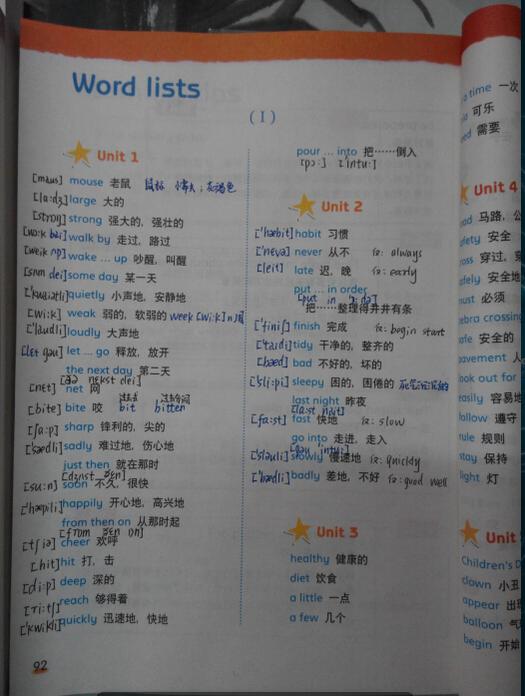 Word lists
( I )
Unit 1
[maus] mouse 老鼠
[la:dʒ] large 大的
[strɒŋ] strong 强大的，强壮的
walk by 走过，路过
wake ... up 吵醒，叫醒
[sʌm dei] some day 某一天
['kwaiətli] quietly 小声地，安静地
[wi:k] weak 弱的，软弱的 week [wi:k] n 周
['laudli] loudly 大声地
[let gəu] let ... go 释放，放开
the next day 第二天
[ðə nekst dei]
[net] net 网
[bite] bite 咬 bit bitten
[ʃa:p] sharp 锋利的，尖的
['sædli] sadly 难过地，伤心地
just then 就在那时
[dʒʌst ðen]
[su:n] soon 不久，很快
['hæpili] happily 开心地，高兴地
from then on 从那时起
[from ðen ɒn]
[tʃiə] cheer 欢呼
[hit] hit 打，击
[di:p] deep 深的
[ri:tʃ] reach 够得着
['kwikli] quickly 迅速地，快地
92
pour ... into 把……倒入
[pɔ:] ['intu:]
Unit 2
['hæbit] habit 习惯
['nevə] never 从不 反: always
[leit] late 迟，晚 反: early
put ... in order
[put in 'ɔ:də]
把……整理得井井有条
['finiʃ] finish 完成 反: begin start
['taidi] tidy 干净的，整齐的
[bæd] bad 不好的，坏的
['sli:pi] sleepy 困的，困倦的
last night 昨夜
[la:st nait]
[fa:st] fast 快地 反: slow
go into 走进，走入
[gəu 'intu:]
['sləuli] slowly 慢速地 反: quickly
['bædli] badly 差地，不好 反: good well
Unit 3
healthy 健康的
diet 饮食
a little 一点
a few 几个
a time 一次
可乐
需要
Unit 4
马路，公
安全
穿过，穿
安全地
必须
ebra crossing
安全的
avement 人
ook out for
easily 容易地
ollow 遵守
rule 规则
stay 保持
light 灯
Unit
Children's D
clown 小丑
appear 出现
balloon 气
begin 开始